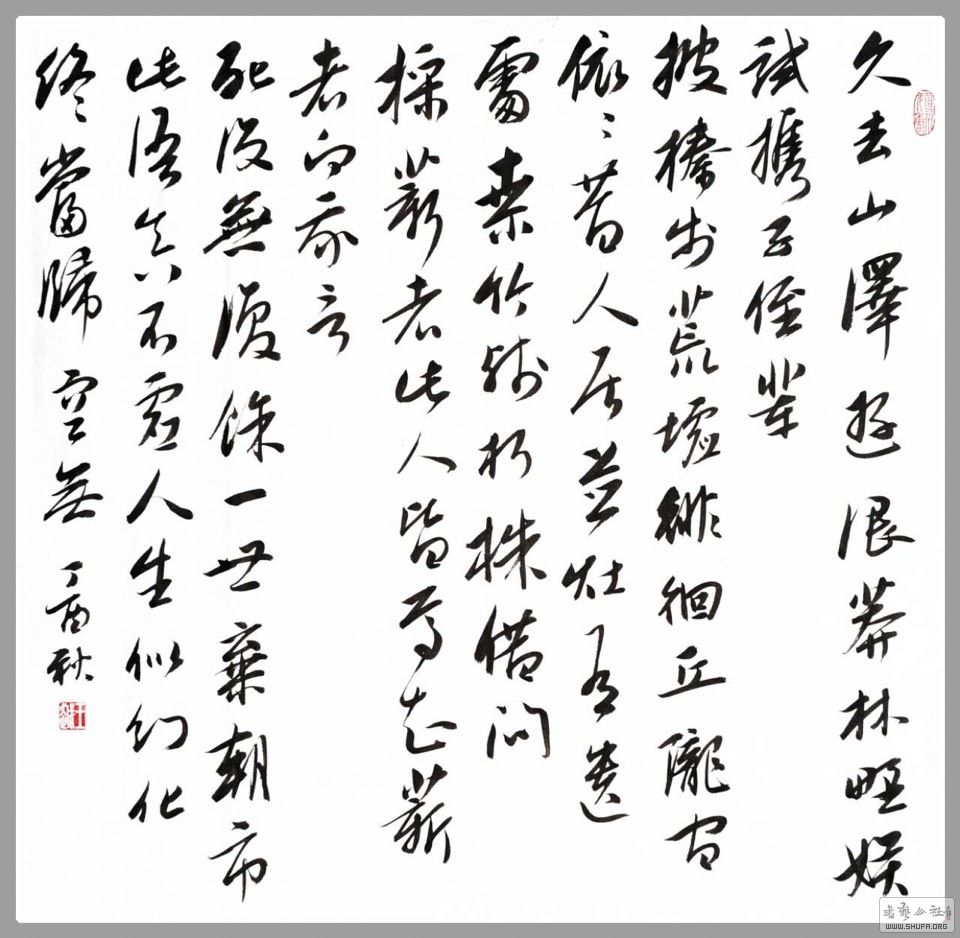 久去山澤遊浪莽林野娱
試攜子侄輩
披榛步荒墟徘徊丘隴間
依〻昔人居井灶有遺
處桑竹残朽株借问
採薪者此人皆焉如薪
者向我言
死没無復餘一世棄朝市
此語真不虚人生似幻化
終當歸空無 丁酉秋
WWW.SHUFA.ORG